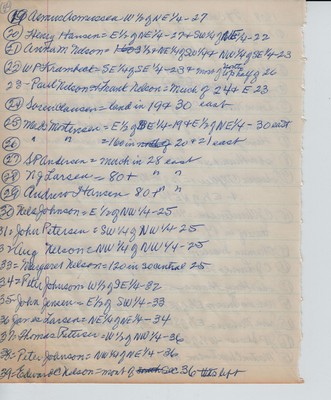 19 Asmus Asmussen = W½ of NE¼-27
20 Henry Hansen = E½ of NE¼-27 & SW¼ of NE¼-22
21 Nelson = NE¼ of SW¼ & NW¼ of SE¼-23
22 WP Krambeck = SE¼ of SE¼-23 & most of of 26
23 - Paul Nelson & Nelson = Much of 24 & E 23
24 Soren Larsen = land in 19 & 30 east
25 Mads Mortensen = E½ of SE¼-19 & E½ of NE¼-30 east
26 " " = 160 in of 20 & 21 east
27 SP Andersen = much in 28 east
28 N.J. Larsen = 80 + " "
29 Andrew Hansen 80 + " "
30 Nels Johnson = E½ of NW¼-25
31 = John Petersen = SW¼ of NW¼-25
32 Aug Nelson = NW¼ of NW¼-25
33 = Margaret Nelson = 120 in so central 25
34 = Peter Johnson = W½ of SE¼-32
35 - John Jensen = E½ of SW¼-33
36 James Larsen = NE¼ of NE¼-34
37 = Thomas Petersen = W½ of NW¼-36
38 = Peter Johnson = NW¼ of NE¼-36
39 = Edward C Nelson = most of 36 left